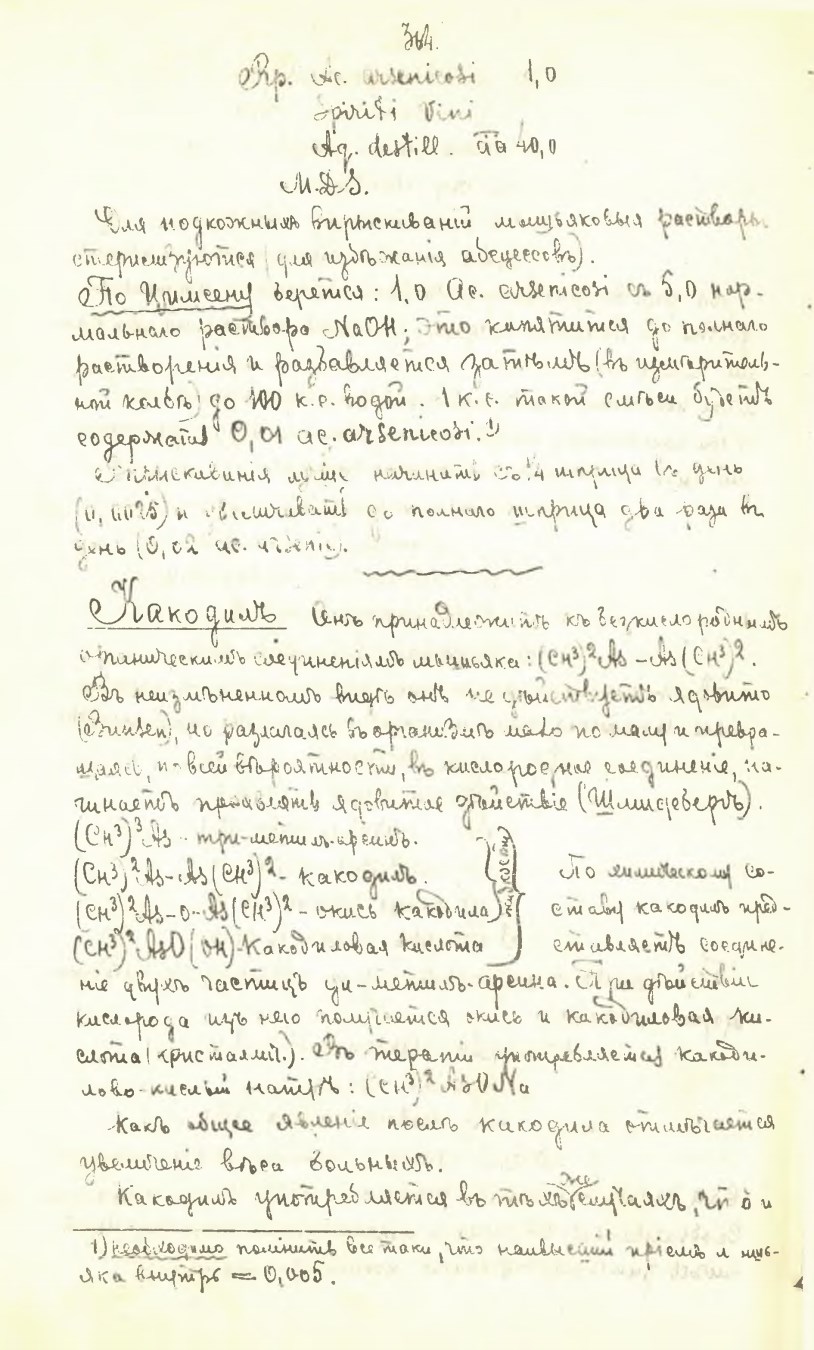 364.
Rp. Ac. arsenicosi 1,0
Spiriti Vini
Aq. destill. āā 40,0
M.D.S.
Для подкожныхъ впрыскиваній мышьяковыя растворы
стерилизуются (для избѣжанія абсцессовъ).
По Цимсену берется: 1,0 Ac. arsenicosi съ 5,0 нор-
мальнаго раствора NaOH; это кипятится до полнаго
растворенія и разбавляется затѣмъ (въ измѣритель-
ной колбѣ) до 100 к.с. водой. 1 к.с. такой смѣси будетъ
содержать 0,01 ac. arsenicosi.1)
Впрыскиванія начинать съ 1/4 шприца въ день
(0,0025) и увеличивать до полнаго шприца два раза въ
день (0,02 ac. arsenic).
Какодилъ Онъ принадлежитъ къ безкислороднымъ
органическимъ соединеніямъ мышьяка: (CH³)²As-As(CH³)².
Въ неизмѣненномъ видѣ онъ не дѣйствуетъ ядовито
(Bunsen), но разлагаясь въ организмѣ мало по малу и превра-
щаясь, по всей вѣроятности, въ кислородное соединеніе, на-
чинаетъ проявлять ядовитое дѣйствіе (Шмидебергъ).
(CH³)³As - три-метилъ-арсинъ.
(CH³)²As-As(CH³)² - какодилъ.
(CH³)²As-O-As(CH³)² - окись какодила
(CH³)²AsO(OH) Какодиловая кислота
По химическому со-
ставу какодилъ пред-
ставляетъ соедине-
ніе двухъ частицъ ди-метилъ-арсина. При дѣйствіи
кислорода изъ него получается окись и какодиловая ки-
слота (кристаллич.). Въ терапіи употребляется какоди-
лово-кислый натръ: (CH³)²AsONa
Какъ общее явленіе послѣ какодила отмѣчается
увеличеніе вѣса больныхъ.
Какодилъ употребляется въ тѣхъ же случаяхъ, что и
1) Необходимо помнить все таки, что наивысшій пріемъ мышь-
яка внутрь = 0,005.